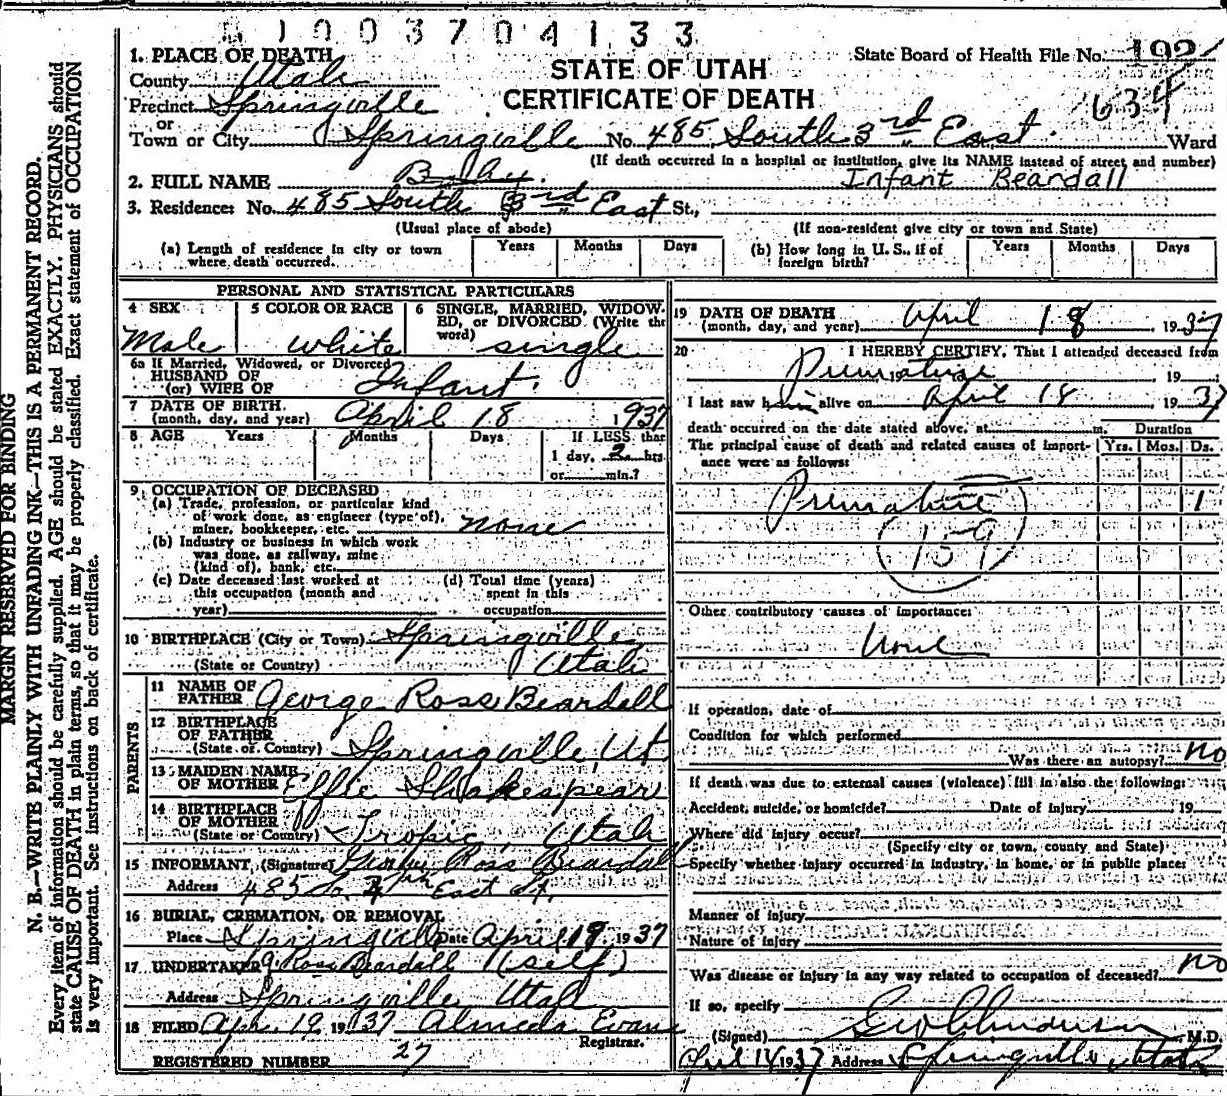 1003704133
1. PLACE OF DEATH
State Board of Health File No. 192
634
County Utah
STATE OF UTAH
Precinct Springville
CERTIFICATE OF DEATH
or
Town or City Springville No. 485 South 3rd East Ward
(If death occurred in a hospital or institution, give its NAME instead of street and number)
2. FULL NAME Baby Infant Beardall
3. Residence: No. 485 South 3rd East St.,
(Usual place of abode) (If non-resident give city or town and State)
(a) Length of residence in city or town where death occurred. Years Months Days (b) How long in U. S., if of foreign birth? Years Months Days
PERSONAL AND STATISTICAL PARTICULARS
4 SEX 5 COLOR OR RACE 6 SINGLE, MARRIED, WIDOWED, or DIVORCED (Write the word)
Male white single
6a If Married, Widowed, or Divorced
HUSBAND OF
(or) WIFE OF Infant.
7 DATE OF BIRTH
(month, day, and year) April 18 1937
8 AGE Years Months Days If LESS than
1 day, 2 hrs
or min.?
9 OCCUPATION OF DECEASED
(a) Trade, profession, or particular kind
of work done, as engineer (type of),
miner, bookkeeper, etc. none
(b) Industry or business in which work
was done, as railway, mine
(kind of), bank, etc.
(c) Date deceased last worked at (d) Total time (years)
this occupation (month and spent in this
year) occupation
10 BIRTHPLACE (City or Town) Springville
(State or Country) Utah
PARENTS
11 NAME OF
FATHER George Ross Beardall
12 BIRTHPLACE
OF FATHER
(State or Country) Springville, Ut
13 MAIDEN NAME
OF MOTHER Effie Shakespear
14 BIRTHPLACE
OF MOTHER
(State or Country) Tropic, Utah
15 INFORMANT, (Signature) George Ross Beardall
Address 485 So. East St.
16 BURIAL, CREMATION, OR REMOVAL
Place Springville Date April 19 1937
17 UNDERTAKER G. Ross Beardall (self)
Address Springville Utah
18 FILED Apr. 19 1937 Almeda Evans
Registrar.
REGISTERED NUMBER 27
19 DATE OF DEATH
(month, day, and year) April 18 1937
20 I HEREBY CERTIFY, That I attended deceased from
Premature 19
I last saw him alive on April 18 1937
death occurred on the date stated above, at m. Duration
The principal cause of death and related causes of importance were as follows: Yrs. Mos. Ds.
Premature 1
159
Other contributory causes of importance:
None
If operation, date of
Condition for which performed
Was there an autopsy? no
If death was due to external causes (violence) fill in also the following:
Accident, suicide, or homicide? Date of injury 19
Where did injury occur?
(Specify city or town, county and State)
Specify whether injury occurred in industry, in home, or in public place:
Manner of injury
Nature of injury
Was disease or injury in any way related to occupation of deceased? no
If so, specify
(Signed) M.D.
April 1937 Address Springville Utah
MARGIN RESERVED FOR BINDING
N. B.—WRITE PLAINLY WITH UNFADING INK—THIS IS A PERMANENT RECORD.
Every item of information should be carefully supplied. AGE should be stated EXACTLY. PHYSICIANS should
state CAUSE OF DEATH in plain terms, so that it may be properly classified. Exact statement of OCCUPATION
is very important. See instructions on back of certificate.